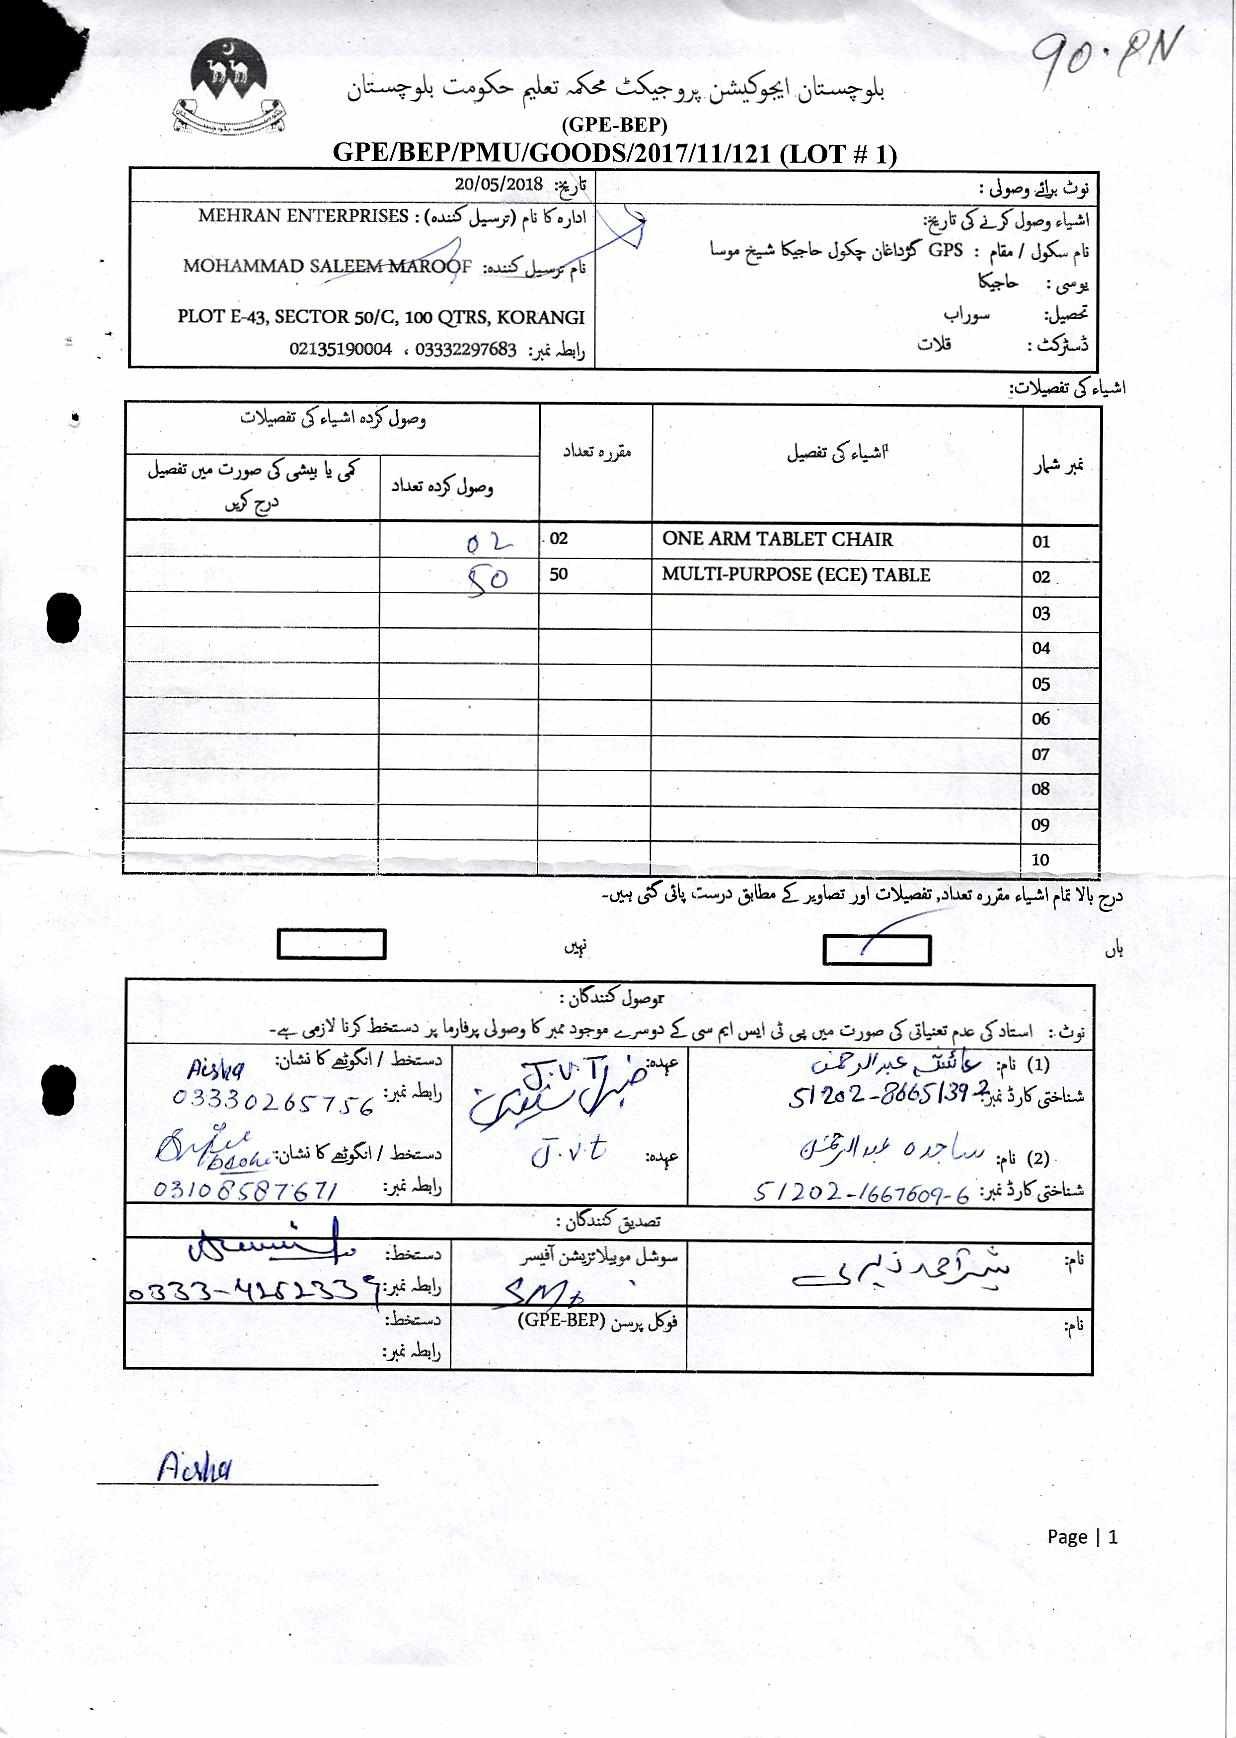 90·PN
بلوچستان ایجوکیشن پروجیکٹ محکمہ تعلیم حکومت بلوچستان
(GPE-BEP)
GPE/BEP/PMU/GOODS/2017/11/121 (LOT # 1)
نوٹ برائے وصولی :
تاریخ: 20/05/2018
اشیاء وصول کرنے کی تاریخ:
ادارہ کا نام (ترسیل کنندہ) : MEHRAN ENTERPRISES
نام سکول / مقام : GPS گڑداغان چکول حاجیکا شیخ موسا
نام ترسیل کنندہ: MOHAMMAD SALEEM MAROOF
یوسی : حاجیکا
تحصیل: سوراب
PLOT E-43, SECTOR 50/C, 100 QTRS, KORANGI
ڈسٹرکٹ : قلات
رابطہ نمبر: 03332297683 ، 02135190004
اشیاء کی تفصیلات:
نمبر شمار اشیاء کی تفصیل مقررہ تعداد وصول کردہ اشیاء کی تفصیلات
وصول کردہ تعداد کمی یا بیشی کی صورت میں تفصیل درج کریں
01 ONE ARM TABLET CHAIR 02 02
02 MULTI-PURPOSE (ECE) TABLE 50 50
03
04
05
06
07
08
09
10
درج بالا تمام اشیاء مقررہ تعداد, تفصیلات اور تصاویر کے مطابق درست پائی گئی ہیں۔
ہاں نہیں
وصول کنندگان :
نوٹ : استاد کی عدم تعیناتی کی صورت میں پی ٹی ایس ایم سی کے دوسرے موجود ممبر کا وصولی پرفارما پر دستخط کرنا لازمی ہے۔
(1) نام: عائشہ عبدالرحمٰن عہدہ: J.V.T دستخط / انگوٹھے کا نشان: Aisha
شناختی کارڈ نمبر: 51202-8665139-2 رابطہ نمبر: 03330265756
(2) نام: ساجدہ عبدالرحمٰن عہدہ: J.v.t دستخط / انگوٹھے کا نشان:
شناختی کارڈ نمبر: 51202-1667609-6 رابطہ نمبر: 03108587671
تصدیق کنندگان :
نام: سوشل موبیلائزیشن آفیسر دستخط:
SMo رابطہ نمبر: 0333-4262339
نام: فوکل پرسن (GPE-BEP) دستخط:
رابطہ نمبر:
Aisha
Page | 1